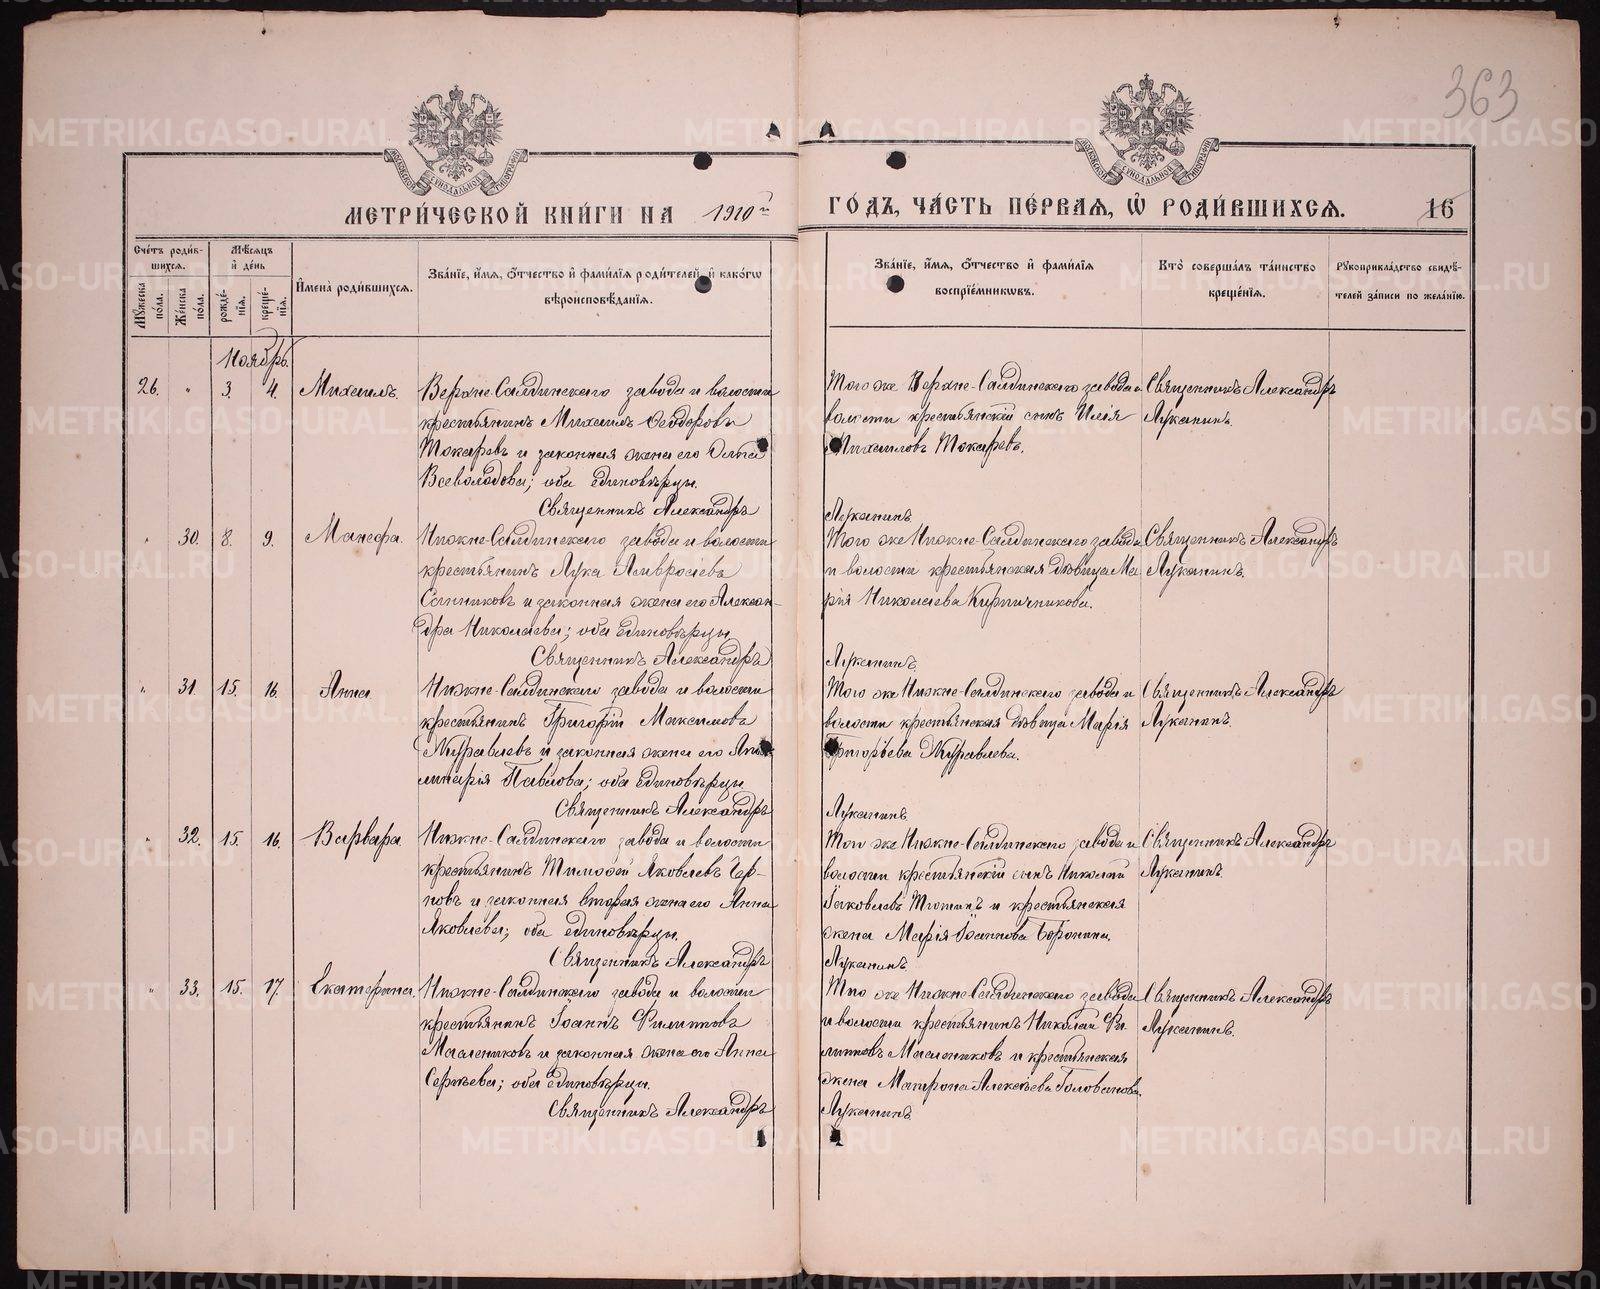 363
МЕТРИ́ЧЕСКОЙ КНИ́ГИ НА 1910й
ГОДЪ, ЧА́СТЬ ПЕ́РВАЯ, Ѡ РОДИ́ВШИХСЯ.
16
Сче́тъ роди́в-
шихся.
Мѣ́сяцъ
и҆ де́нь
Мꙋ́жеска по́ла.
Же́нска по́ла.
рожде́-
нїѧ.
креще́-
нїѧ.
И҆мена̀ роди́вшихся.
Зва́нїе, и҆́мѧ, ѻ҆́тчество и҆ фами́лїѧ роди́телей, и҆ како́гѡ
вѣроисповѣ́данїѧ.
Зва́нїе, и҆́мѧ, ѻ҆́тчество и҆ фами́лїѧ
воспрїе́мникѡвъ.
Кто̀ соверша́лъ та́инство
креще́нїѧ.
Рꙋкоприкла́дство свидѣ́-
телей за́писи по жела́нїю.
Ноябрь.
26. " 3. 4. Михаилъ.
Верхне-Салдинскаго завода и волости
крестьянинъ Михаилъ Ѳеодоровъ
Токаревъ и законная жена его Ольга
Всеволодова; оба единовѣрцы.
Священникъ Александръ
Того же Верхне-Салдинскаго завода и
волости крестьянскій сынъ Илія
Михаиловъ Токаревъ.
Луканинъ
Священникъ Александръ
Луканинъ.
" 30. 8. 9. Манефа.
Нижне-Салдинскаго завода и волости
крестьянинъ Лука Амвросіевъ
Санниковъ и законная жена его Алексан-
дра Николаева; оба единовѣрцы
Священникъ Александръ
Того же Нижне-Салдинскаго завода
и волости крестьянская дѣвица Ма
рія Николаева Кирпичникова.
Луканинъ
Священникъ Александръ
Луканинъ.
" 31. 15. 16. Анна
Нижне-Салдинскаго завода и волости
крестьянинъ Григорій Максимовъ
Журавлевъ и законная жена его Апол
линарія Павлова; оба единовѣрцы
Священникъ Александръ
Того же Нижне-Салдинскаго завода и
волости крестьянская дѣвица Марія
Григорьева Журавлева.
Луканинъ
Священникъ Александръ
Луканинъ.
" 32. 15. 16. Варвара
Нижне-Салдинскаго завода и волости
крестьянинъ Тимоѳей Яковлевъ Чер-
новъ и законная вторая жена его Анна
Яковлева; оба единовѣрцы.
Священникъ Александръ
Того же Нижне-Салдинскаго завода и
волости крестьянскій сынъ Николай
Іаковлевъ и крестьянская
жена Марія Іоаннова Воронина.
Луканинъ
Священникъ Александръ
Луканинъ.
" 33. 15. 17. Екатерина.
Нижне-Салдинскаго завода и волости
крестьянинъ Іоаннъ Филипповъ
Маслениковъ и законная жена его Анна
Сергѣева; оба единовѣрцы.
Священникъ Александръ
Того же Нижне-Салдинскаго завода
и волости крестьянинъ Николай Фи
липповъ Маслениковъ и крестьянская
жена Матрона Алексѣева Голованова.
Луканинъ
Священникъ Александръ
Луканинъ.
METRIKI.GASO-URAL.RU